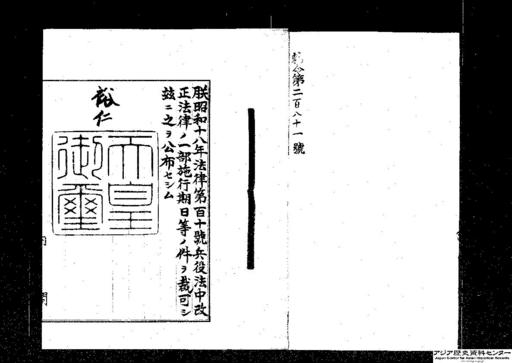 勅令第二百八十一號
朕昭和十八年法律第百十號兵役法中改
正法律ノ一部施行期日等ノ件ヲ裁可シ
玆ニ之ヲ公布セシム
裕仁
天皇
御璽
内
閣
アジア歴史資料センター
Japan Center for Asian Historical Records